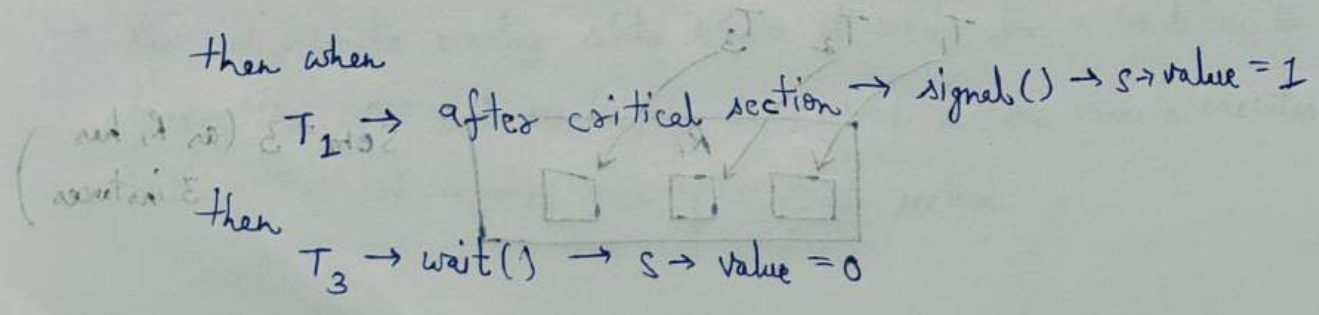 then when
T1 → after critical section → signal() → s→ value = 1
then
T3 → wait() → s→ value = 0